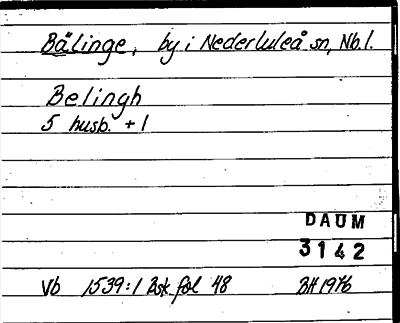 Bälinge, by i Nederluleå sn, Nb.l.
Belingh
5 husb. + 1
DAUM
3142
Vb 1539:1 Bsk. fol 48 BH 1976